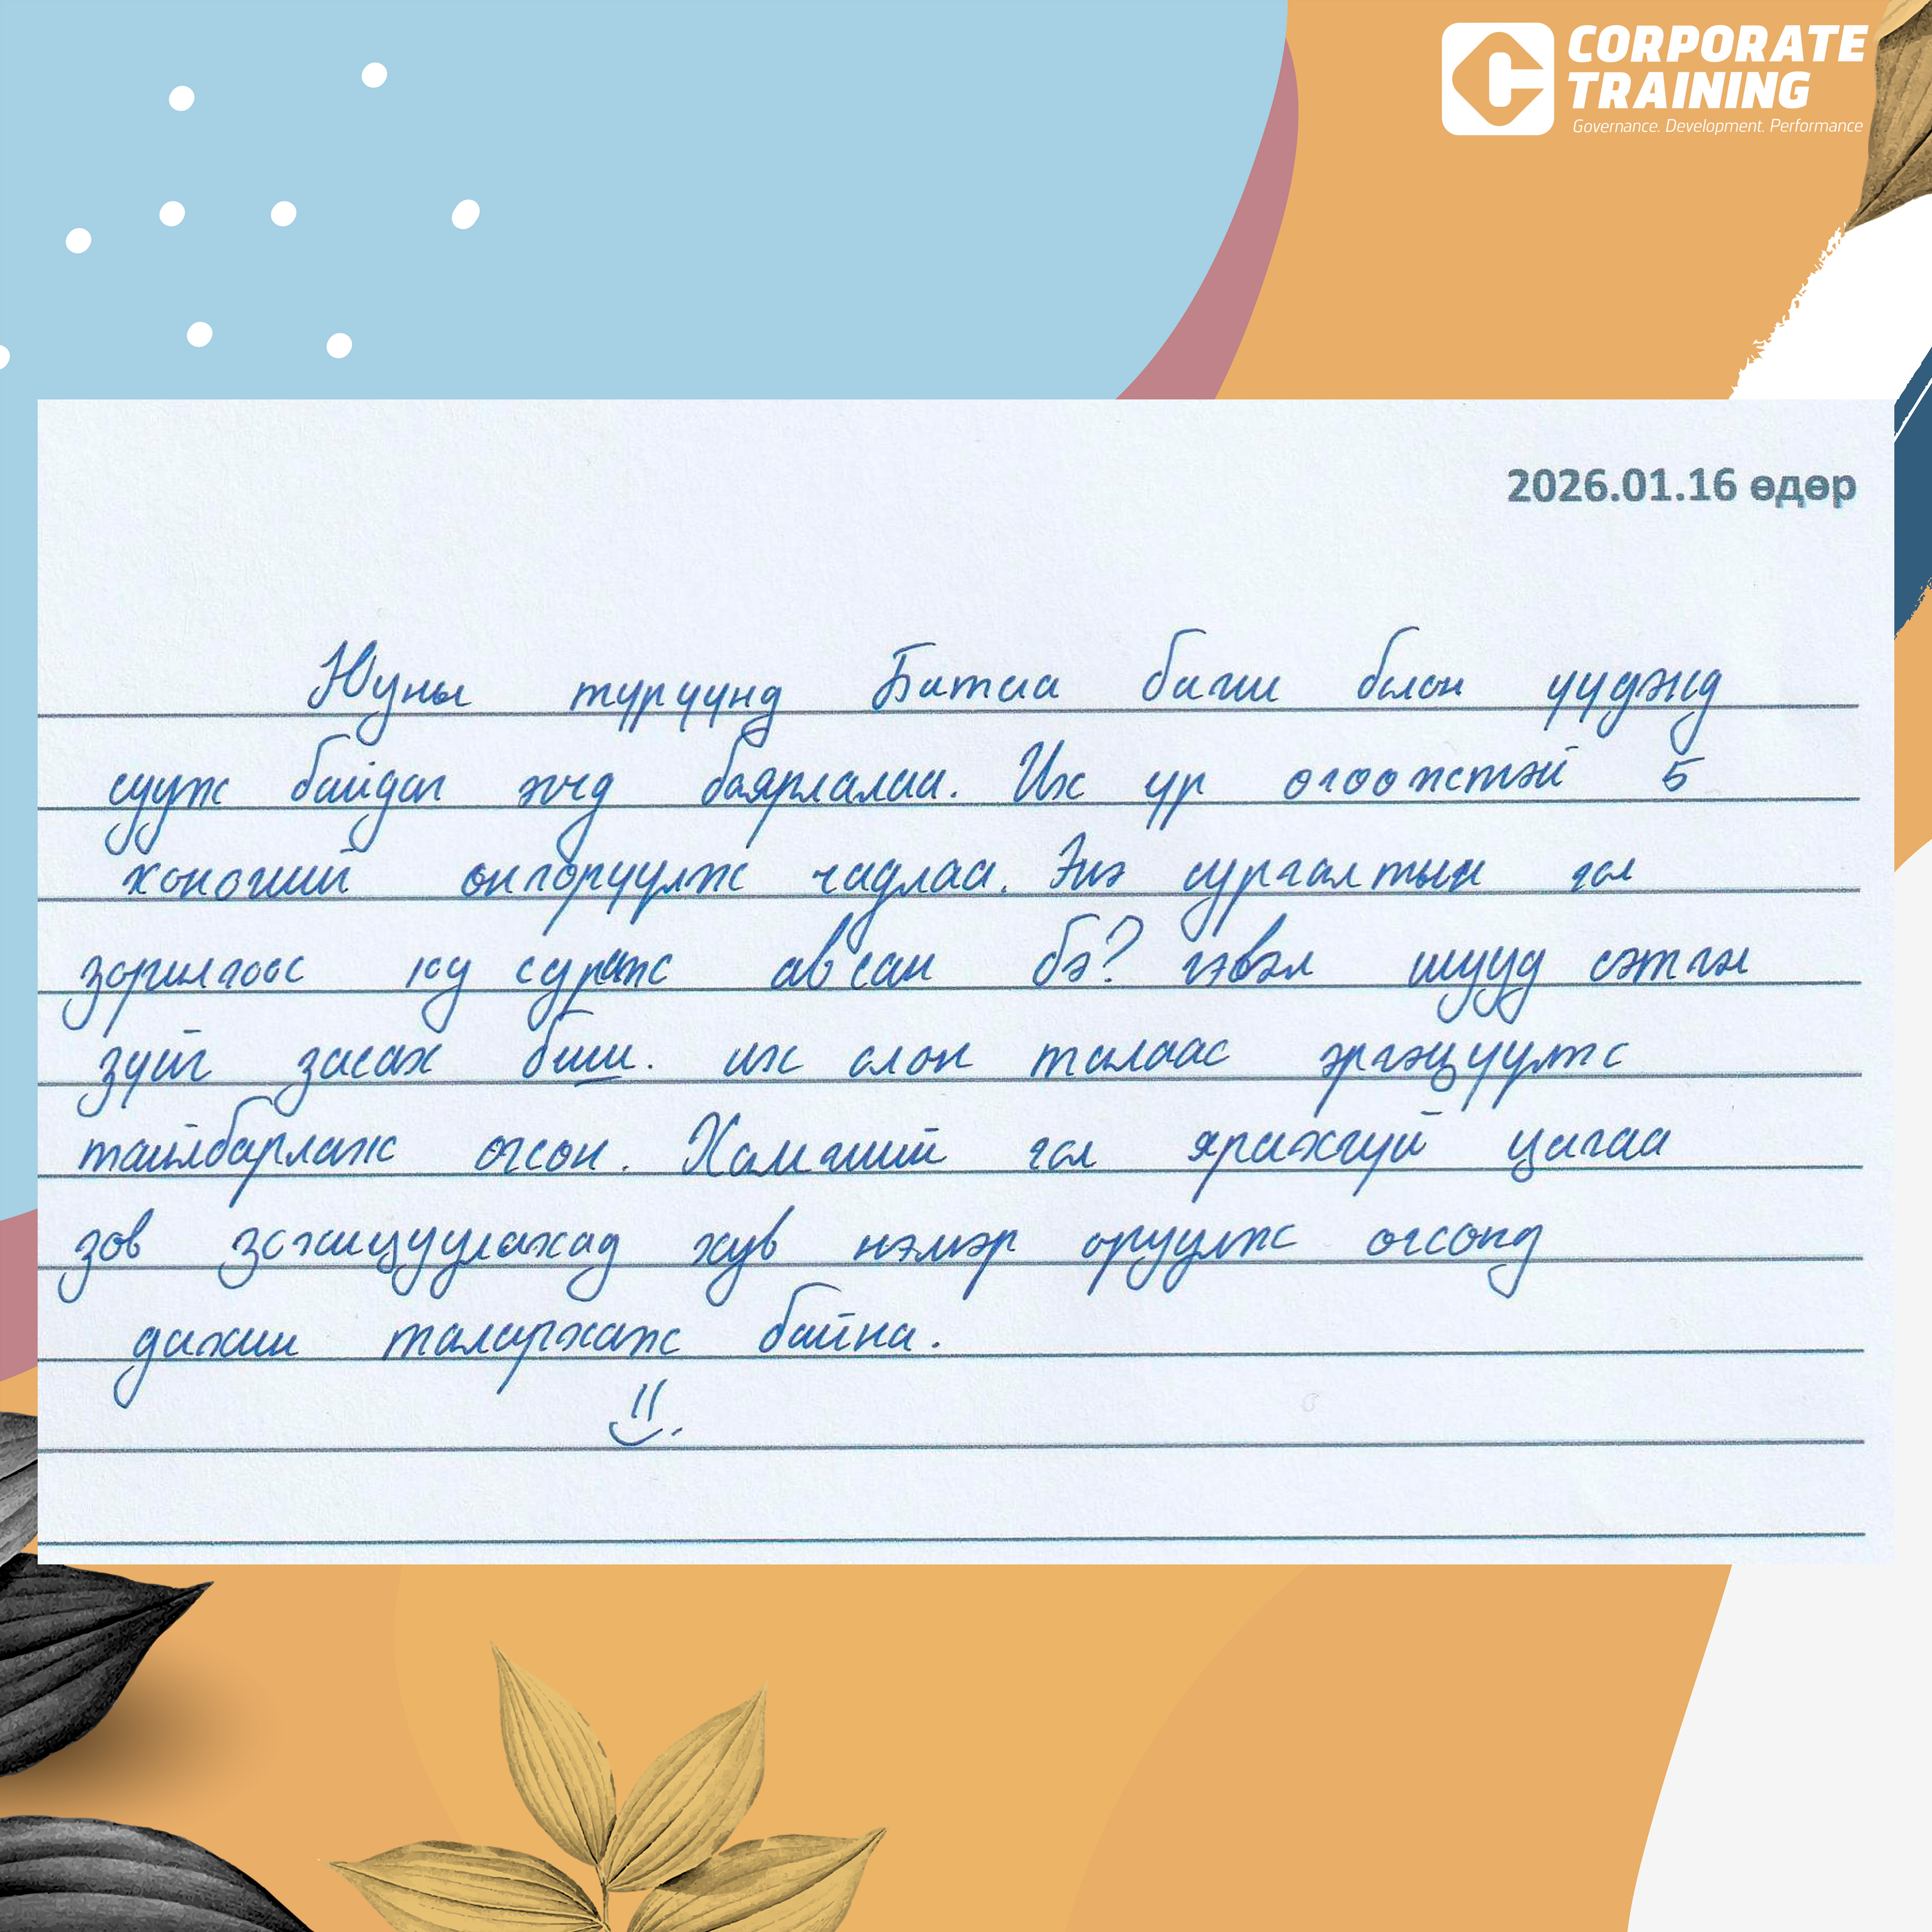 CORPORATE
TRAINING
Governance. Development. Performance
2026.01.16 өдөр
Юуны түрүүнд Батаа багш болон үүдэнд
сууж байдаг эгчд баярлалаа. Их үр өгөөжтэй 5
хоногийг өнгөрүүлж чадлаа. Энэ сургалтын гол
зорилгоос юу сураж авсан бэ? гэвэл шууд сэтгэл
зүйг засах биш. их олон талаас эргэцүүлж
тайлбарлаж өгсөн. Хамгийн гол ярихгүй цагаа
зөв зохицуулахад хув нэмэр оруулж өгсөнд
дахин талархаж байна.